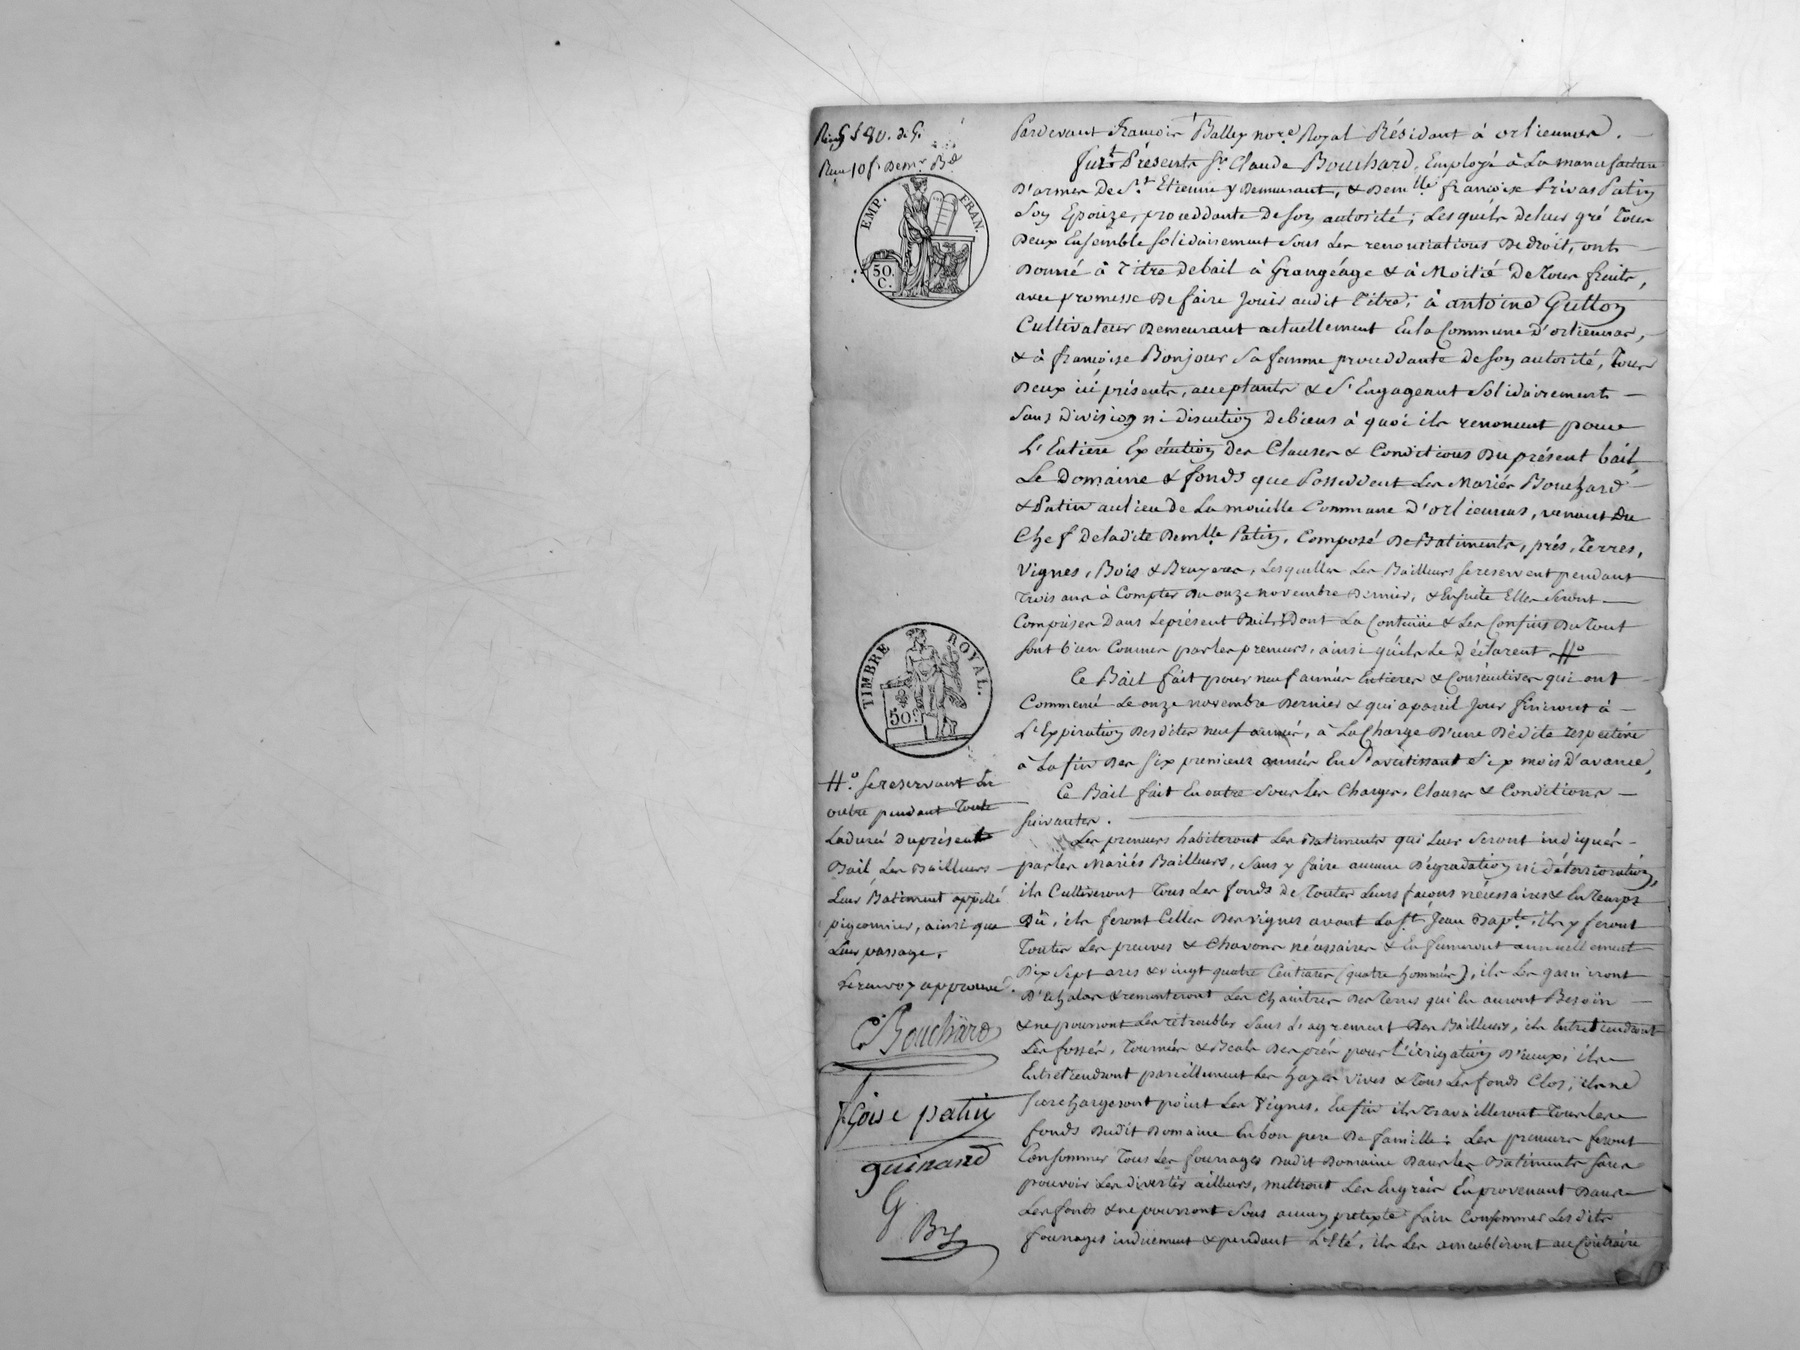 Pardevant François Balley nore. Royal Résidant à orlienas.
furt. Présents Sr. Claude Bouchard, Employé à La manufacture
D'armes De St. Etienne y Demeurant, & Demlle. françoise Privas Patin
Son Epouze, proceddante de son autorité; Lesquels de leur gré Tous
Deux Ensemble solidairement sous Les renonciations De droit, ont
Donné à Titre de bail à Grangéage & à Moitié De Tous fruits,
avec promesse De faire Jouir audit Titre; à antoine Gutton
Cultivateur Demeurant actuellement En la Commune d'orlienas,
& à françoise Bonjour Sa femme proceddante de son autorité, Tous
Deux ici présents, acceptants & S'Engageant Solidairement
Sans Division ni discution de biens à quoi ils renoncent pour
L'Entiere Exécution Des Clauses & Conditions Du présent bail,
Le Domaine & fonds que Posseddent Les Mariés Bouchard
& Patin au lieu de La mouille Commune d'orlienas, venant Du
Chef de ladite Demlle. Patin, Composé De Batiments, prés, Terres,
Vignes, Bois & Bruyeres, Lesquelles Les Bailleurs se reservent pendant
Trois ans à Compter Du onze novembre Dernier, & Ensuite Elles Seront
Comprises Dans Le présent Bail; Dont La Contenüe & Les Confins Du Tout
sont b'en Connus par les preneurs, ainsi qu'ils Le Déclarent #o
Ce Bail fait pour neuf années Entieres & Consécutives qui ont
Commencé Le onze novembre Dernier & qui a pareil Jour finiront à
L'Expiration Desdites neuf années, à La Charge D'une Dédite respective
à La fin Des Six premieres années En S'avertissant Six mois d'avance,
Ce Bail fait En outre Sous Les Charges, Clauses & Conditions
Suivantes.
Les preneurs habiteront Les Batiments qui Leur Seront indiqués
par les Mariés Bailleurs, Sans y faire aucune Dégradation ni détérioration,
ils Cultiveront Tous Les fonds de Toutes Leurs façons nécessaires & En Temps
Dû, ils feront Celles Des vignes avant La St. Jean Bapte., ils y feront
Toutes Les preuves & Chavons nécessaires & En fumeront annuellement
Dix Sept ares & vingt quatre Centiares (quatre hommées), ils Les garniront
D'Echalas & remonteront Les Chaintres Des Terres qui En auront Besoin
& ne pourront Les retroubler Sans L'agrément Des Bailleurs, ils Entretiendront
Les fossés, Tournées & Beals Des prés pour L'irrigation D'iceux; ils
Entretiendront pareillement Les hayes vives & Tous Les fonds Clos; ils ne
Surchargeront point Les Vignes, Enfin ils Travailleront Tous Les
fonds Dudit Domaine En bon pere De famille: Les preneurs feront
Consommer Tous Les fourrages Dudit Domaine Dans Les Batiments Sans
pouvoir Les divertir ailleurs, mettront Les Engrais En provenant Dans
Les fonds & ne pourront Sous aucun pretexte faire Consommer Lesdits
fourrages induement & pendant L'Eté, ils Les ameubliront au Contraire
EMP. FRAN.
50.
C.
TIMBRE ROYAL.
50c
#o. Se reservant En
outre pendant Toute
La durée du présent
Bail Les Bailleurs
Leur Batiment appellé
pigeonnier, ainsi que
Leur passage.
Le renvoy approuvé.
C. Bouchard
fçoise patin
guinand
G
By